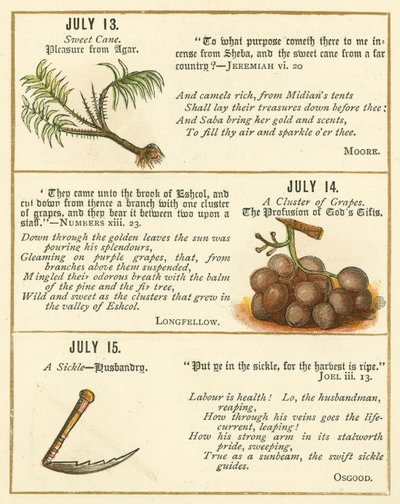 JULY 13.
Sweet Cane.
Pleasure from Agar.
"To what purpose cometh there to me in-
cense from Sheba, and the sweet cane from a far
country?—JEREMIAH vi. 20
And camels rich, from Midian's tents
Shall lay their treasures down before thee:
And Saba bring her gold and scents,
To fill thy air and sparkle o'er thee.
MOORE.
'They came unto the brook of Eshcol, and
cut down from thence a branch with one cluster
of grapes, and they bear it between two upon a
staff."—NUMBERS xiii. 23.
Down through the golden leaves the sun was
pouring his splendours,
Gleaming on purple grapes, that, from
branches above them suspended,
Mingled their odorous breath with the balm
of the pine and the fir tree,
Wild and sweet as the clusters that grew in
the valley of Eshcol.
LONGFELLOW.
JULY 14.
A Cluster of Grapes.
The Profusion of God's Gifts.
JULY 15.
A Sickle—Husbandry.
"Put ye in the sickle, for the harvest is ripe."
JOEL iii. 13.
Labour is health! Lo, the husbandman,
reaping,
How through his veins goes the life-
current, leaping!
How his strong arm in its stalworth
pride, sweeping,
True as a sunbeam, the swift sickle
guides.
OSGOOD.